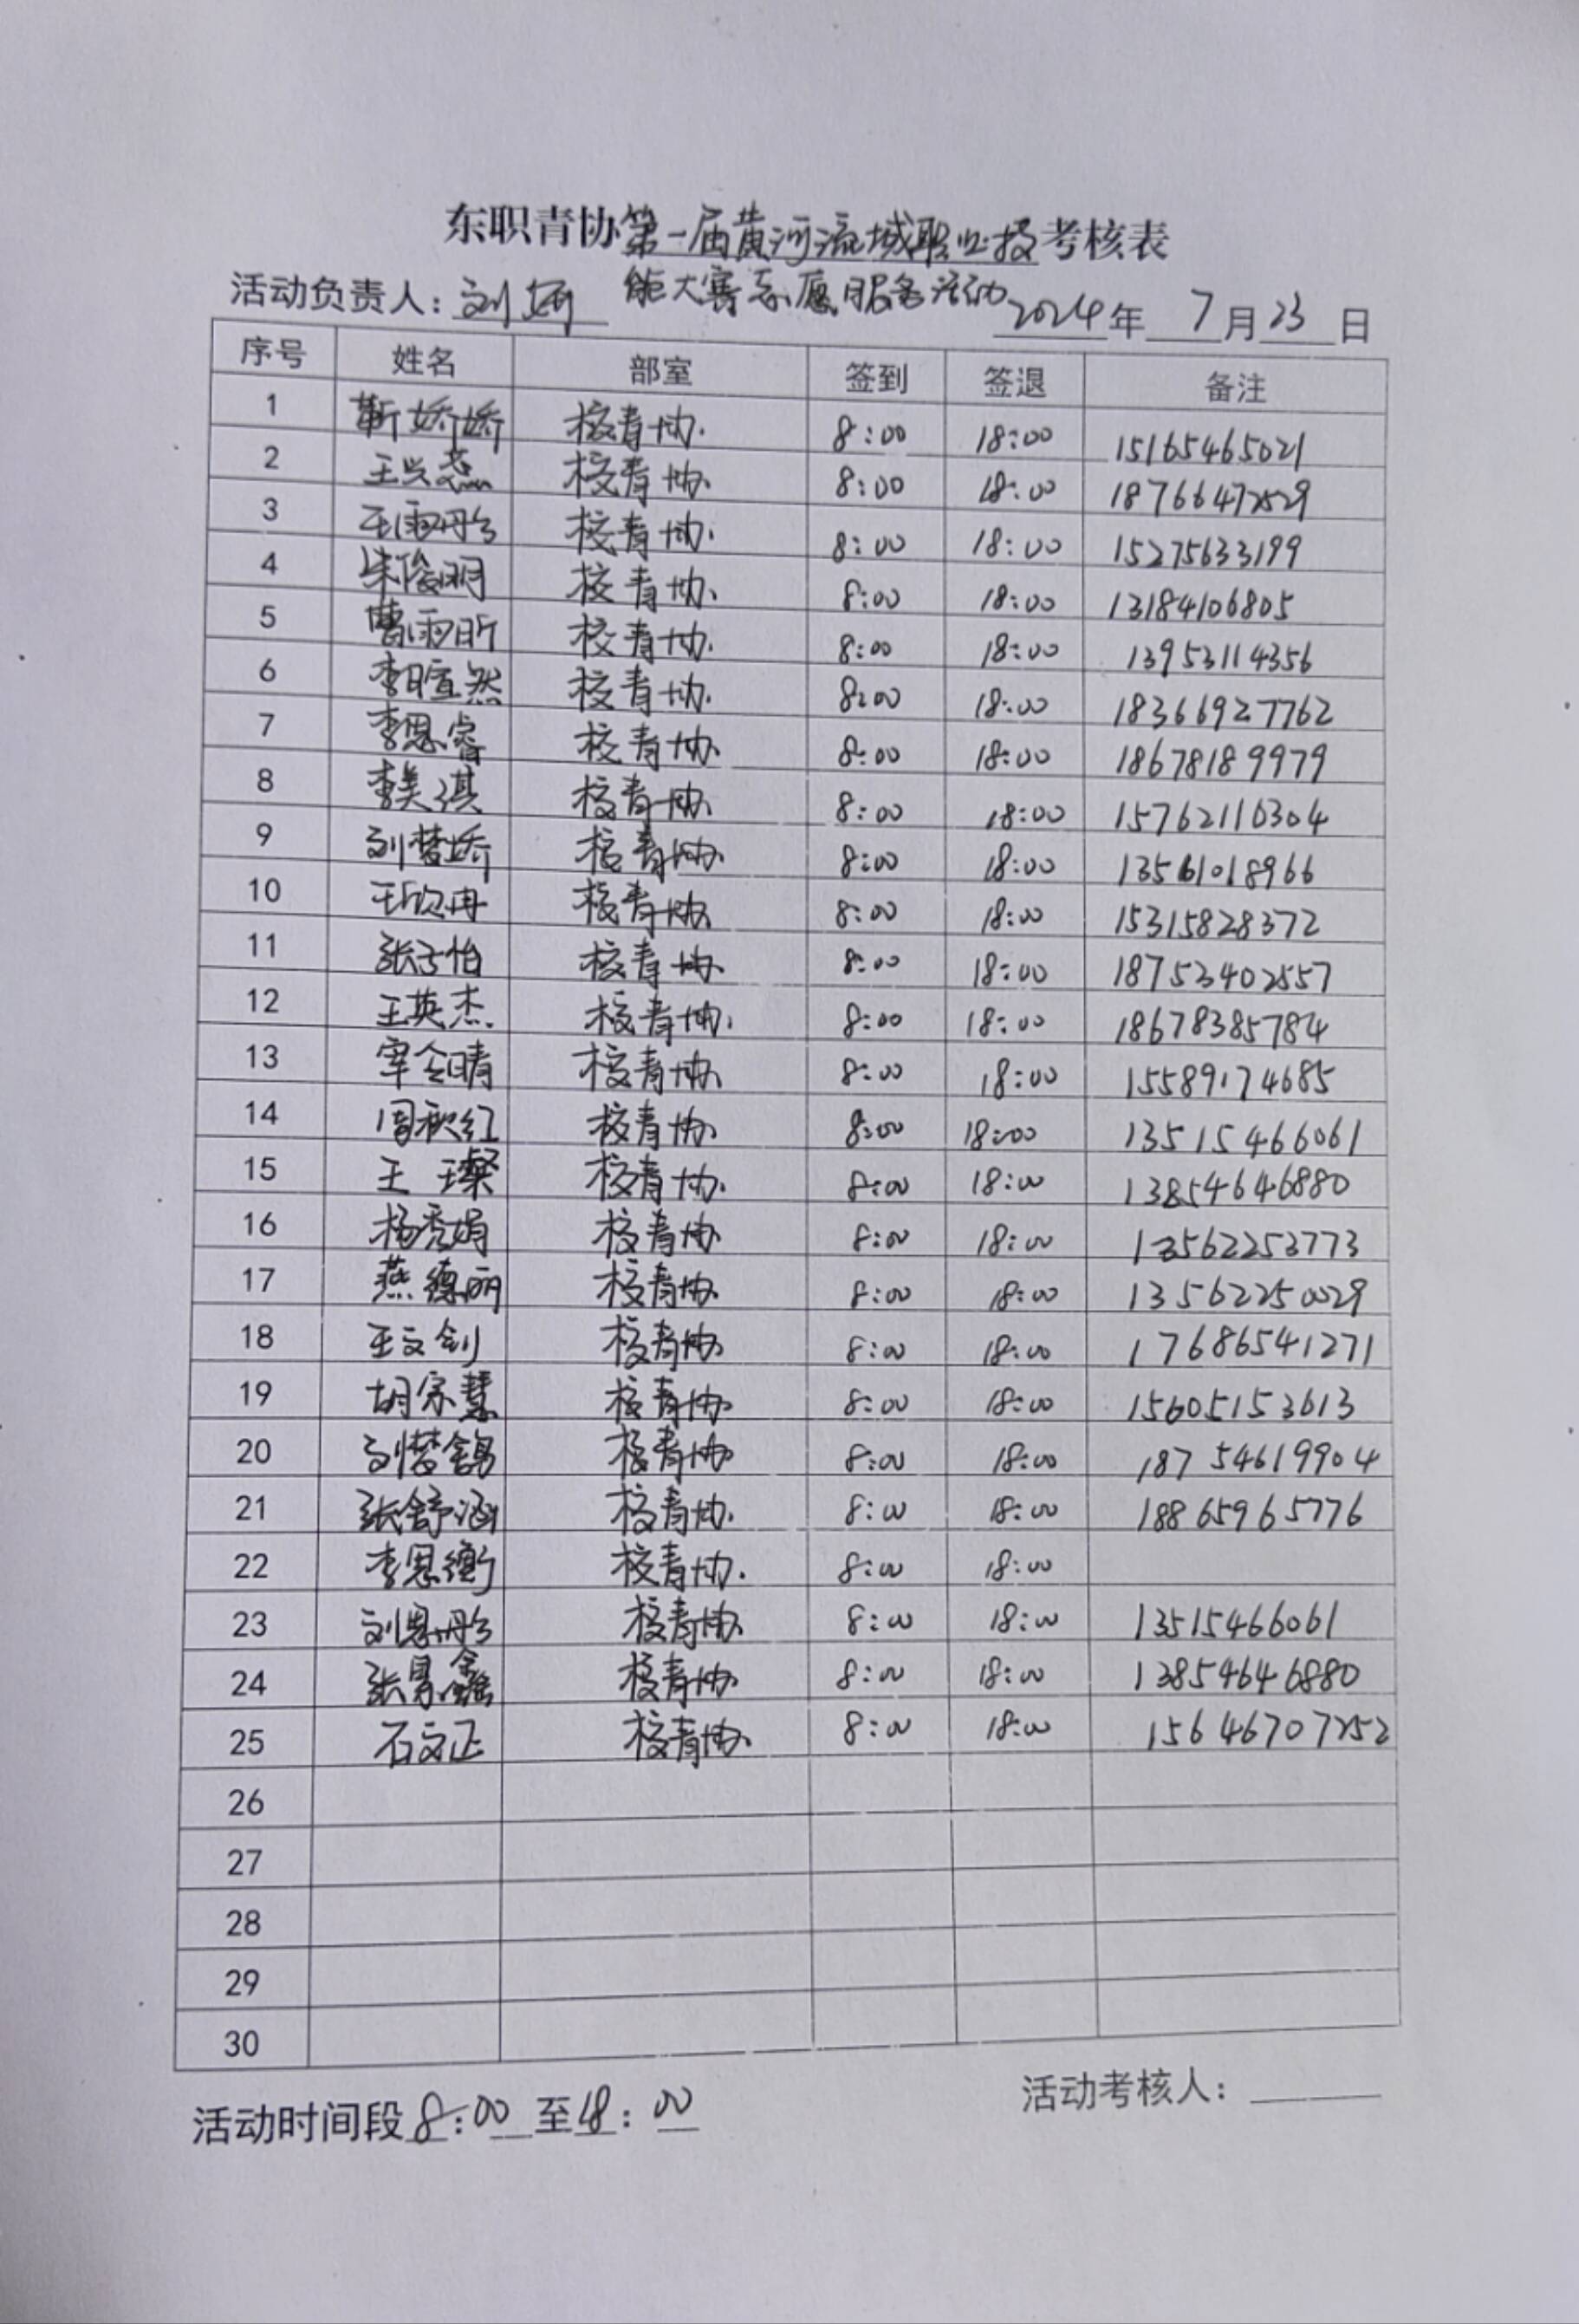 东职青协第一届黄河流域职业技考核表
能大赛志愿服务活动
活动负责人：刘娇 2024年 7月23日
序号 姓名 部室 签到 签退 备注
1 靳娇娇 校青协 8:00 18:00 15165465021
2 王兴燕 校青协 8:00 18:00 18766472529
3 王雨彤 校青协 8:00 18:00 15275633199
4 朱俊明 校青协 8:00 18:00 13184106805
5 曹雨昕 校青协 8:00 18:00 13953114356
6 李暄然 校青协 8:00 18:00 18366927762
7 李思睿 校青协 8:00 18:00 18678189979
8 李美琪 校青协 8:00 18:00 15762110304
9 刘梦娇 校青协 8:00 18:00 13561018966
10 王欣冉 校青协 8:00 18:00 15315828372
11 张子怡 校青协 8:00 18:00 18753402557
12 王英杰 校青协 8:00 18:00 18678385784
13 宰金晴 校青协 8:00 18:00 15589174685
14 周秋红 校青协 8:00 18:00 13515466061
15 王璨 校青协 8:00 18:00 13854646880
16 杨秀娟 校青协 8:00 18:00 13562253773
17 燕德丽 校青协 8:00 18:00 13562250029
18 王文钊 校青协 8:00 18:00 17686541271
19 胡宗慧 校青协 8:00 18:00 15605153613
20 刘梦锡 校青协 8:00 18:00 18754619904
21 张舒涵 校青协 8:00 18:00 18865965776
22 李思衡 校青协 8:00 18:00
23 刘恩彤 校青协 8:00 18:00 13515466061
24 张景鑫 校青协 8:00 18:00 13854646880
25 石文正 校青协 8:00 18:00 15646707252
26
27
28
29
30
活动时间段8:00至18:00 活动考核人：